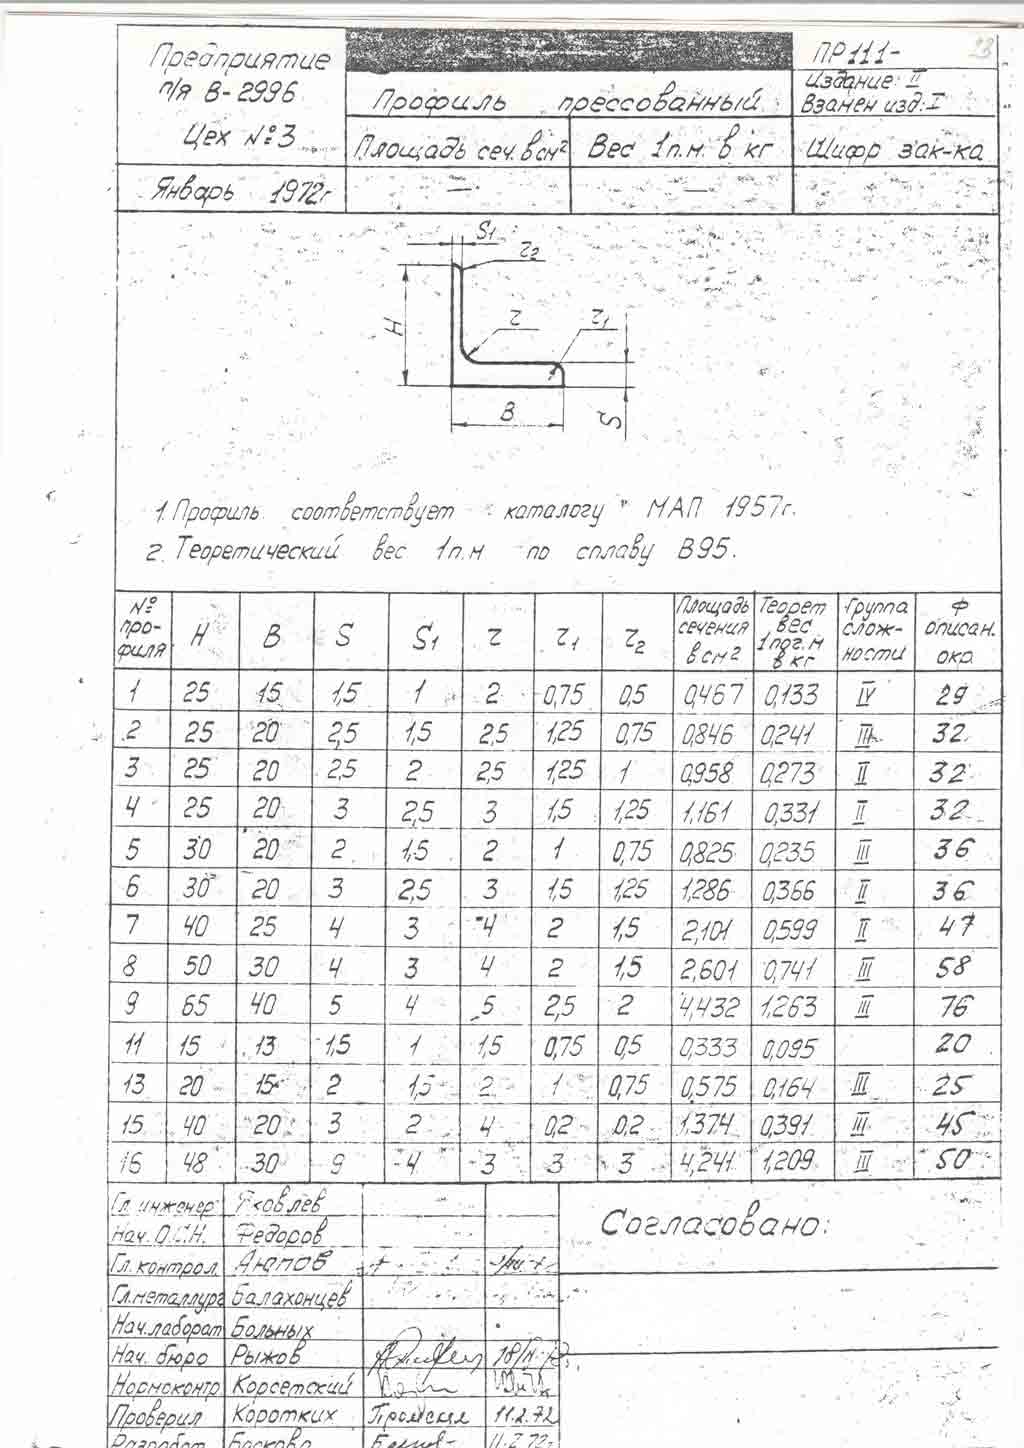 23
Предприятие
п/я В-2996
Цех №3
Январь 1972г
Профиль прессованный
ПР111-
Издание: II
Взамен изд: I
Площадь сеч. в см² Вес 1п.м. в кг Шифр зак-ка
— —
S1
r2
H
r
r1
B
S
1. Профиль соответствует "каталогу" МАП 1957г.
2. Теоретический вес 1п.м по сплаву В95.
№ про-филя H B S S1 r r1 r2 Площадь сечения в см2 Теорет вес 1пог.м в кг Группа слож-ности Ф описан. окр.
1 25 15 1,5 1 2 0,75 0,5 0,467 0,133 IV 29
2 25 20 2,5 1,5 2,5 1,25 0,75 0,846 0,241 III 32
3 25 20 2,5 2 2,5 1,25 1 0,958 0,273 II 32
4 25 20 3 2,5 3 1,5 1,25 1,161 0,331 II 32
5 30 20 2 1,5 2 1 0,75 0,825 0,235 III 36
6 30 20 3 2,5 3 1,5 1,25 1,286 0,366 II 36
7 40 25 4 3 4 2 1,5 2,101 0,599 II 47
8 50 30 4 3 4 2 1,5 2,601 0,741 III 58
9 65 40 5 4 5 2,5 2 4,432 1,263 III 76
11 15 13 1,5 1 1,5 0,75 0,5 0,333 0,095 20
13 20 15 2 1,5 2 1 0,75 0,575 0,164 III 25
15 40 20 3 2 4 0,2 0,2 1,374 0,391 III 45
16 48 30 9 4 3 3 3 4,241 1,209 III 50
Гл. инженер Яковлев
Нач. О.С.Н. Федоров
Гл. контрол. Аюпов
Гл. металлург Балахонцев
Нач. лаборат Больных
Нач. бюро Рыжов
Нормоконтр Корсетский
Проверил Коротких 11.2.72
Разработ. Баскова
Согласовано: